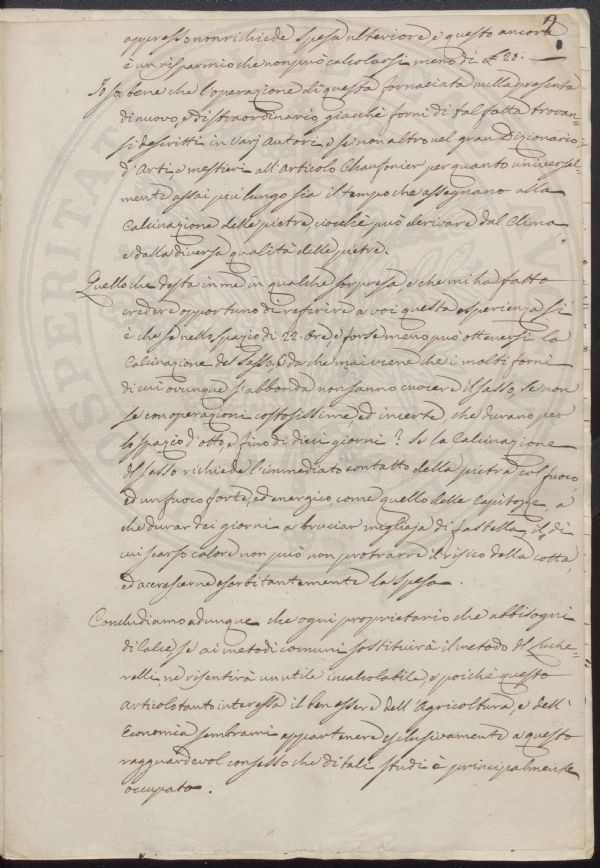 appresso non richiede spesa ulteriore e questo ancora
è un risparmio che non può calcolarsi meno di £ 20:
Io so bene che l'operazione di questa fornaciata nulla presenta
di nuovo, e di straordinario giacchè forni di tal fatta trovan-
si descritti in varj Autori, e se non altro nel gran Dizionario
d'Arti e mestieri all'Articolo Chaufornier per quanto universal-
mente assai più lungo sia il tempo che assegnano alla
Calcinazione delle pietre, ciocchè può derivare dal Clima
e dalla diversa qualità delle pietre.
Quello che desta in me in qualche sorpresa e che mi ha fatto
credere opportuno di referire a voi questa esperienza si
è che se nello spazio di 22. Ore, e forse meno può ottenersi la
Calcinazione del Sasso, da che mai viene che i molti forni
di cui ovunque s'abbonda non sanno cuocere il sasso, se non
se con operazioni costosissime, ed incerte, che durano per
lo spazio d'otto, e fino di dieci giorni? Se la Calcinazione
del sasso richiede l'immediato contatto della pietra col fuoco,
ed un fuoco forte, ed energico come quello delle Capitozze, a
che durar dei giorni a bruciar migliaja di fastella, di
cui scarso calore non può non protrarre il risico della cotta,
ed accrescerne esorbitantemente la spesa.
Concludiamo adunque che ogni proprietario che abbisogni
di Calce se ai metodi comuni sostituirà il metodo del Luche-
relli ne risentirà un utile incalcolabile, e poichè questo
articolo tanto interessa il ben essere dell'Agricoltura, e dell'
Economia sembrami appartenere esclusivamente a questo
ragguardevol consesso che di tali studi è principalmente
occupato.